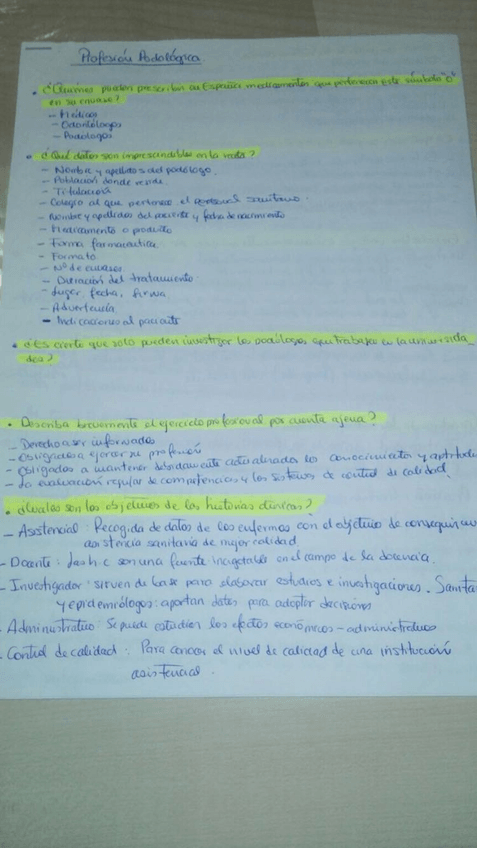 Profesión Podológica
• ¿Quiénes pueden prescribir en España medicamentos que pertenecen este símbolo "O"
en su envase?
- Médicos
- Odontólogos
- Podólogos
• ¿Qué datos son imprescindibles en la receta?
- Nombre y apellidos del podólogo.
- Población donde ejerce.
- Titulación
- Colegio al que pertenece el personal sanitario
- Nombre y apellidos del paciente y fecha de nacimiento
- Medicamento o producto
- Forma farmacéutica
- Formato
- Nº de envases.
- Duración del tratamiento
- Lugar, fecha, firma
- Advertencia
- Indicaciones al paciente
• ¿Es cierto que solo pueden investigar los podólogos que trabajan en la universida_
des?
• Describa brevemente el ejercicio profesional por cuenta ajena?
- Derecho a ser informados
- Obligados a ejercer su profesión
- Obligados a mantener debidamente actualizados los conocimientos y aptitude
- La evaluación regular de competencias y los sistemas de control de calidad.
• ¿Cuáles son los objetivos de las historias clínicas?
- Asistencial: Recogida de datos de los enfermos con el objetivo de conseguir una
asistencia sanitaria de mayor calidad
- Docente: las h.c son una fuente inagotable en el campo de la docencia.
- Investigador: sirven de base para elaborar estudios e investigaciones. Sanita
y epidemiólogos: aportan datos para adoptar decisiones
- Administrativo: Se puede estudiar los efectos económicos-administrativos
- Control de calidad: Para conocer el nivel de calidad de una institución
asistencial.